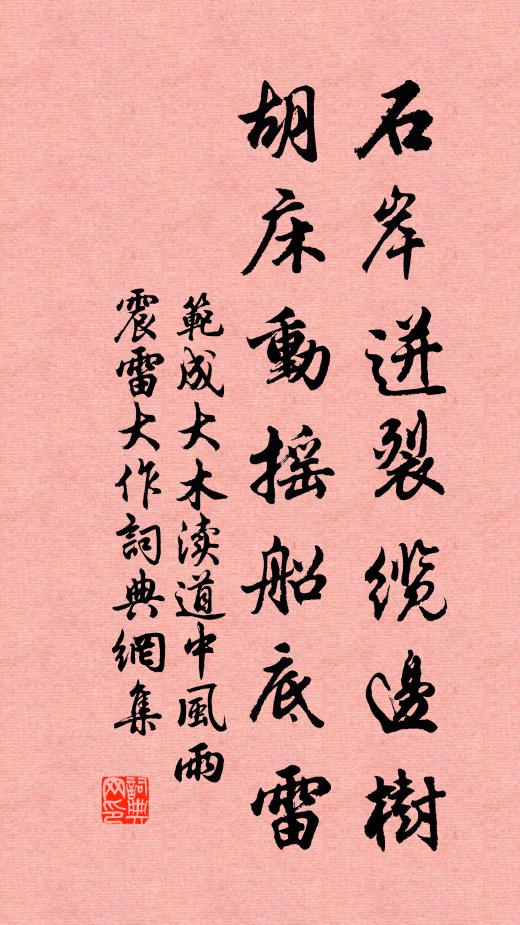 石岸迸裂缆邊樹
胡床動摇船底雷
範成大木渎道中風雨
震雷大作詞典網集
詞典網印